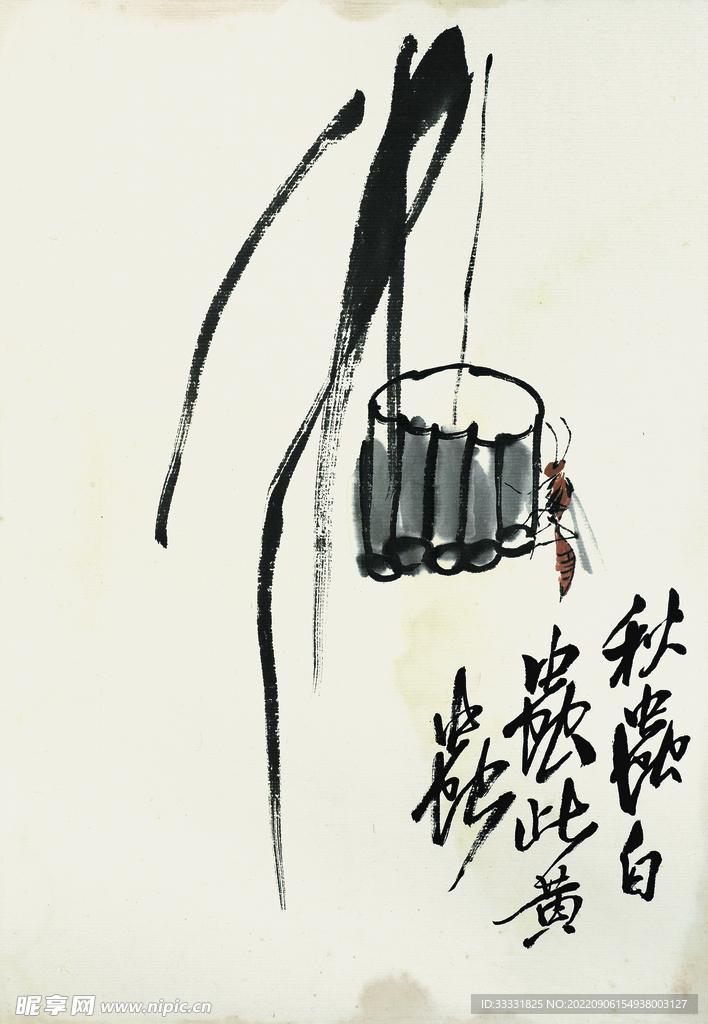 秋蟲白
蟲此黄
蟲
昵享网 www.nipic.cn
ID:33331825 NO:20220906154938003127